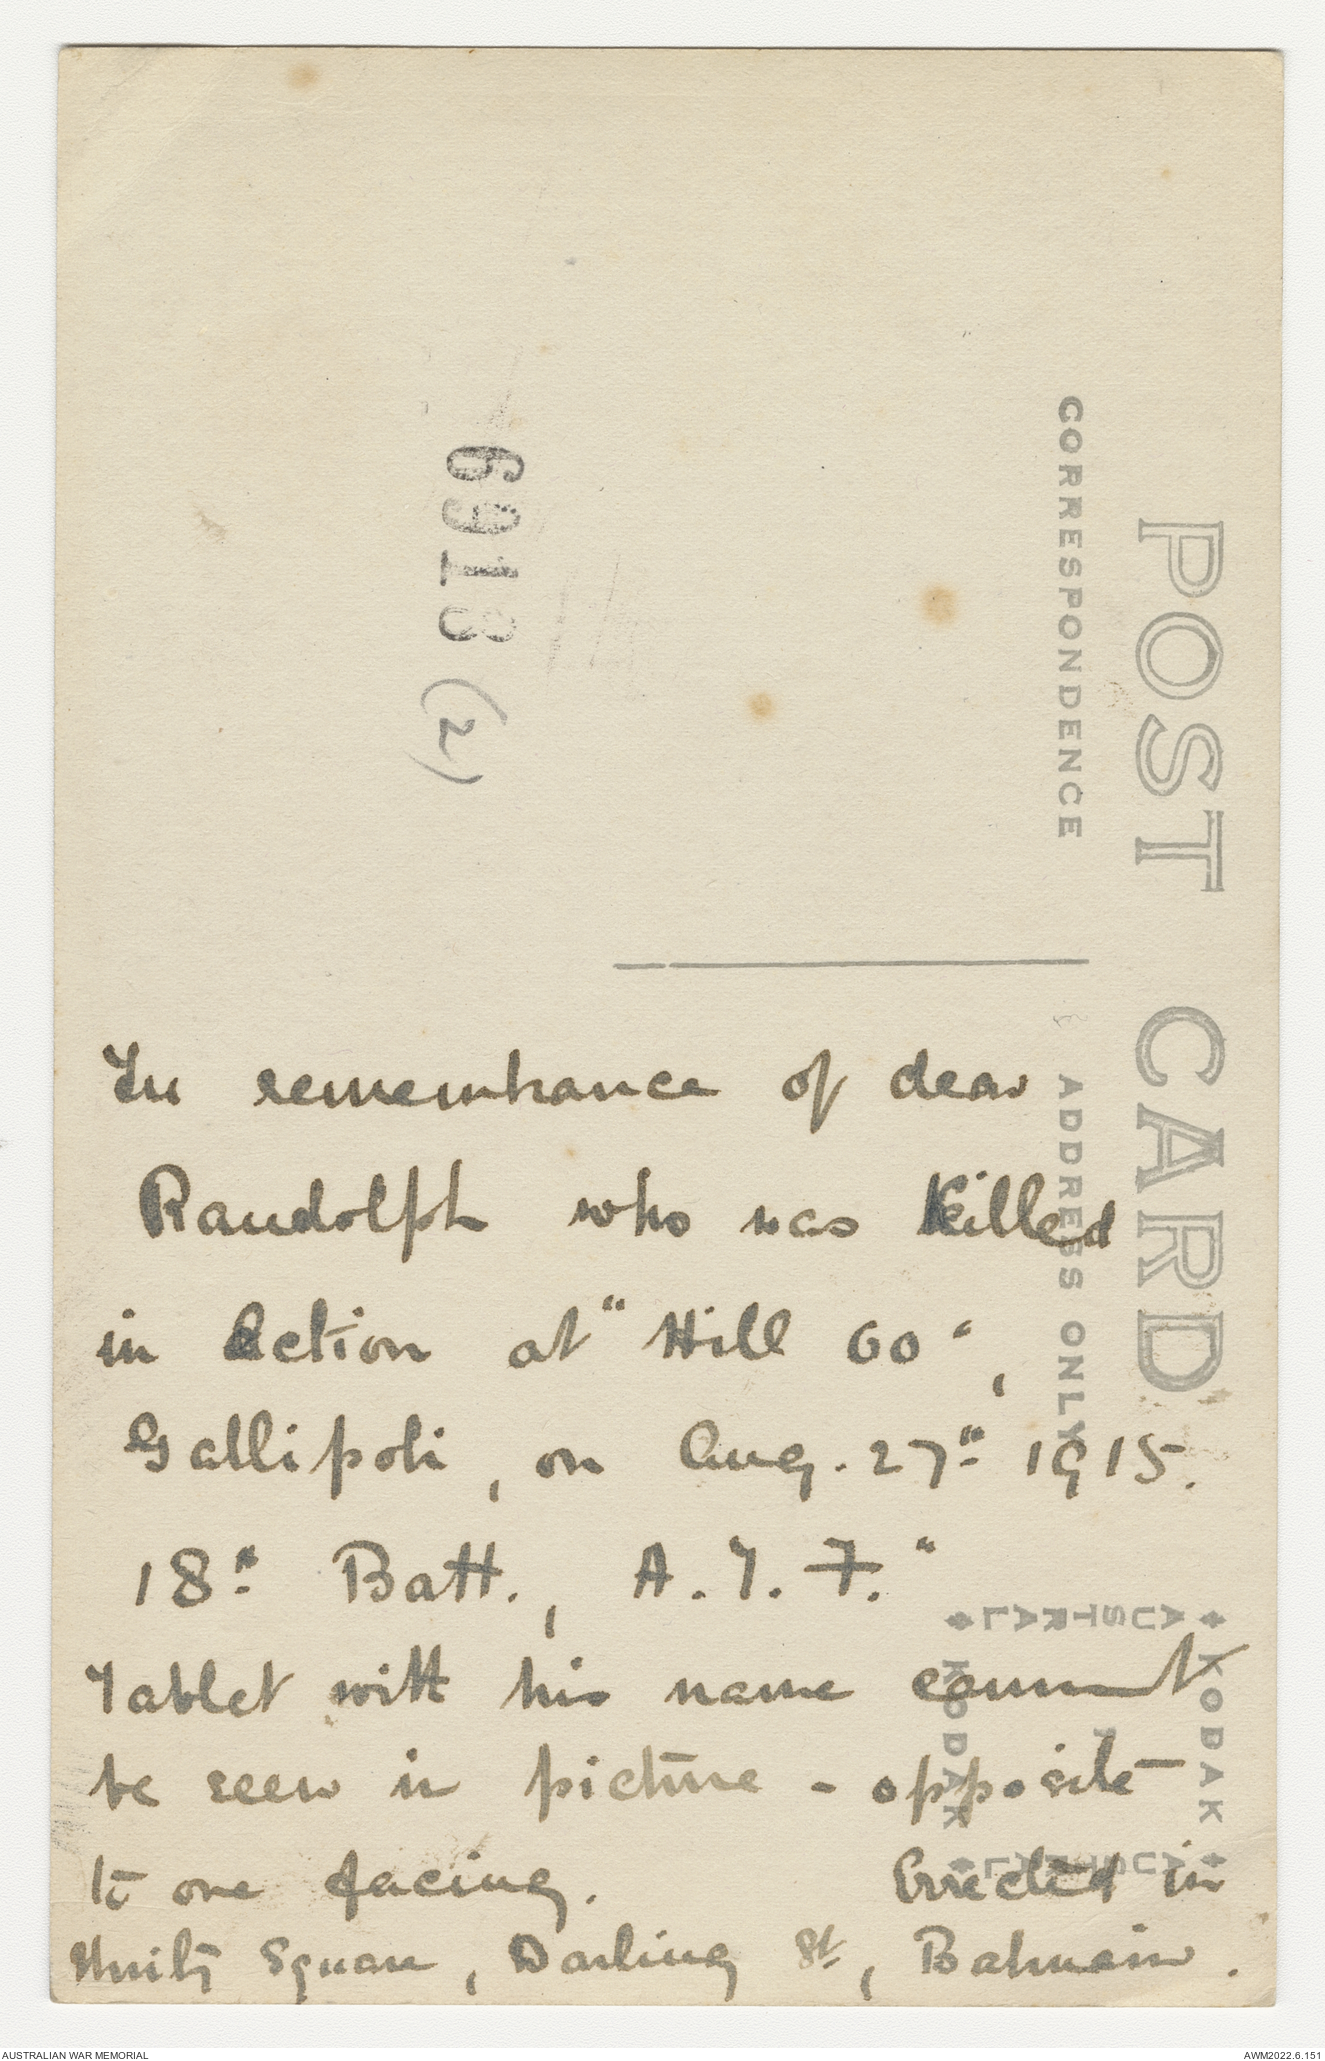 POST CARD
CORRESPONDENCE
ADDRESS ONLY
6918 (2)
In remembrance of dear
Randolph who was Killed
in Action at "Hill 60",
Gallipoli, on Aug. 27th 1915.
18th Batt., A.I.F."
Tablet with his name cannot
be seen in picture - opposite
to one facing. Erected in
Unity Square, Darling St, Balmain.
KODAK
AUSTRAL
KODAK
AUSTRAL
AUSTRALIAN WAR MEMORIAL
AWM2022.6.151